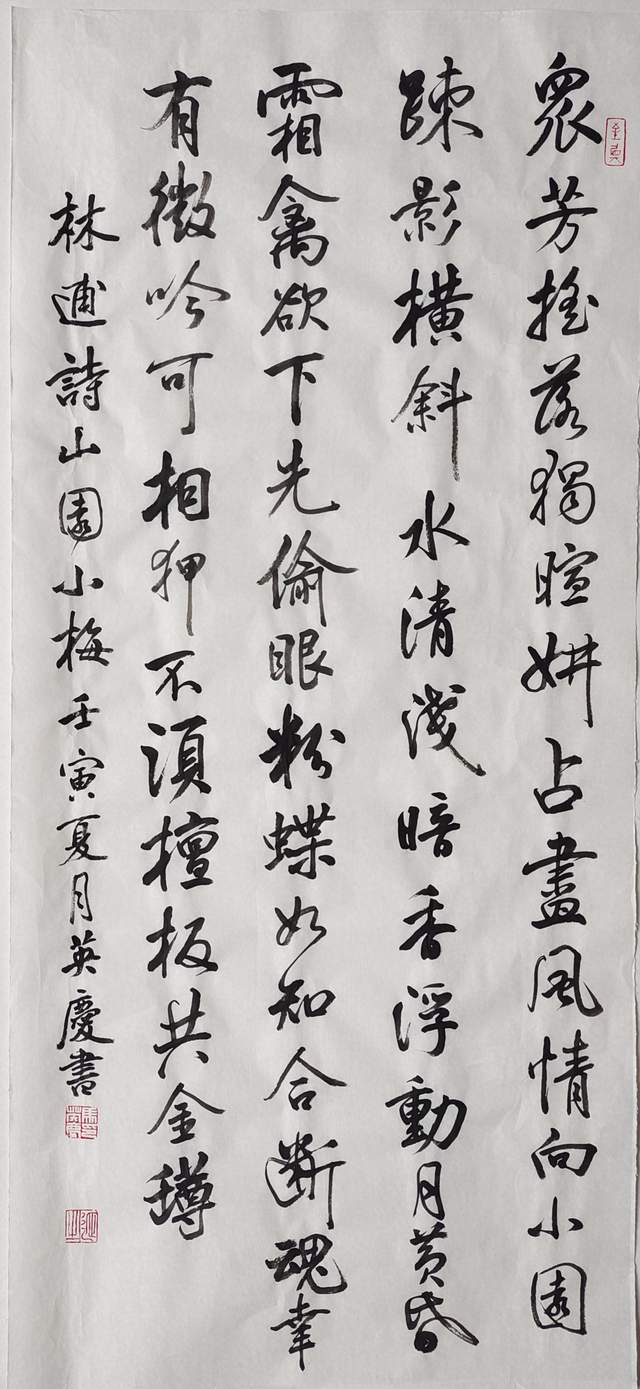 眾芳搖落獨暄妍占盡風情向小園
疎影橫斜水清淺暗香浮動月黃昏
霜禽欲下先偷眼粉蝶如知合斷魂幸
有微吟可相狎不須檀板共金罇
林逋詩山園小梅壬寅夏月英慶書